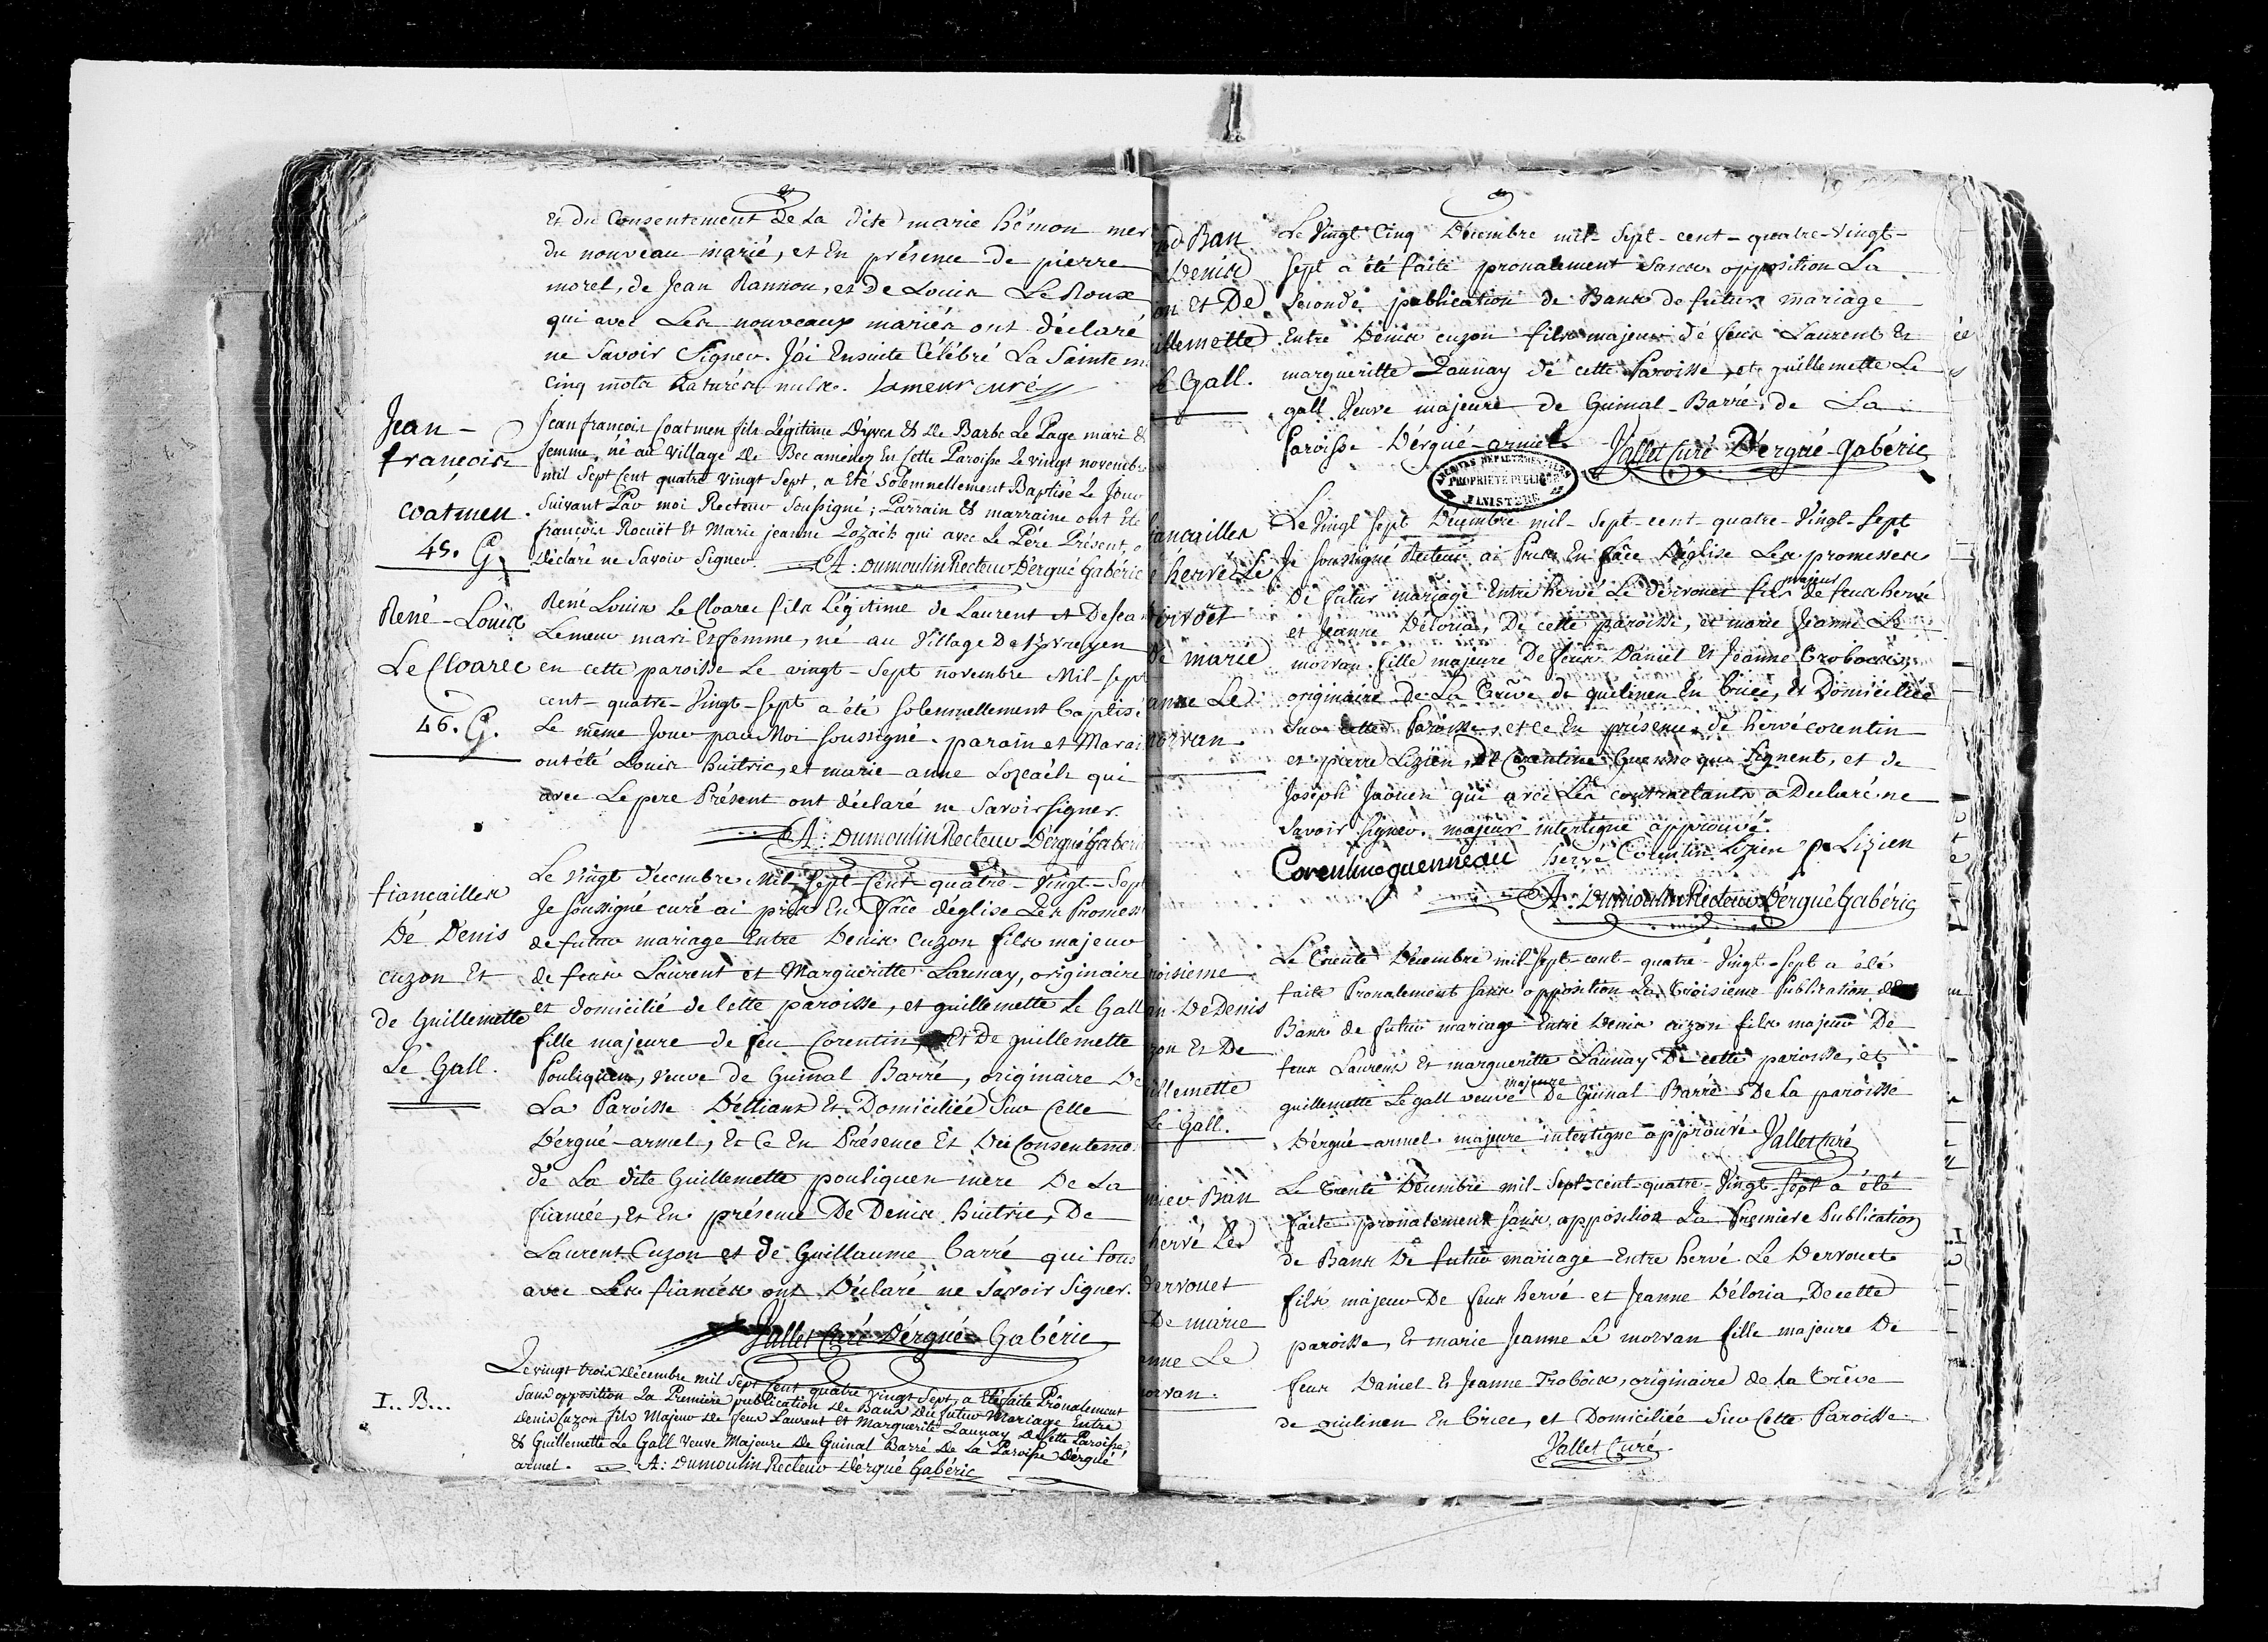 Et du Consentement De La dite marie hémon mer
du nouveau marié, et En présence de pierre
morel, de Jean Rannou, et de Louis Le Roux
qui avec Les nouveaux mariés ont déclaré
ne Savoir Signer. J'ai Ensuite Célébré La Sainte m
cinq mots raturés nuls. Lameur curé
Jean-
françois
coatmen.
45. G.
Jean françois Coatmen fils Légitime D'yves & De Barbe Le Page mari &
femme, né au Village De Bec amenez En Cette Paroisse Le vingt novembre
mil Sept Cent quatre vingt Sept, a Eté Solemnellement Baptisé Le Jour
Suivant Par moi Recteur Soussigné; Parrain & marraine ont Eté
françois Rocuët Et Marie jeanne Lozaïch qui avec Le Père Présent, o
Déclaré ne Savoir Signer. A: Dumoulin Recteur D'ergué Gabéric
René-Louis
Le Cloarec
46. G.
René Louis Le Cloarec fils Légitime de Laurent et De Jean
Lemeur mari Et femme, né au Village De
en cette paroisse Le vingt-Sept novembre Mil-Sept
cent-quatre-Vingt-Sept a été solemnellement baptisé
Le même Jour par Moi soussigné. parain et Marai
ont été Louis huitric, et marie-anne Lozeach qui
avec Le pere Présent ont déclaré ne Savoir signer.
A: Dumoulin Recteur D'ergué Gaberi
fiancailles
De Denis
cuzon Et
de Guillemette
Le Gall.
Le Vingt Décembre Mil Sept Cent quatre-Vingt-Sept
Je soussigné curé ai pris En Face d'église Les Promess
de futur mariage Entre Denis Cuzon fils majeur
de feus Laurent et Margueritte Launay, originaire
et domicilié de Cette paroisse, et guillemette Le Gall
fille majeure de feu Corentin, Et De guillemette
Pouliquen, veuve de Guinal Barré, originaire De
La Paroisse D'elliant Et Domiciliée Sur Celle
D'ergué-armel, Et Ce En Présence Et Du Consenteme
de La dite Guillemette pouliquen mere De La
fiancée, Et En présence De Denis huitric, De
Laurent Cuzon et de Guillaume barré qui tous
avec Les fiancés ont Déclaré ne Savoir Signer.
Vallet Curé D'ergué Gabéric
I.. B...
Le vingt trois Décembre mil Sept Cent quatre vingt Sept, a Eté faite Prônalement
Sans opposition La Premiere publication De Bans Du futur Mariage Entre
Denis Cuzon fils Majeur De feus Laurent Et Marguerite Launay De Cette Paroisse
& Guillemette Le Gall Veuve Majeure De Guinal Barré De La Paroisse D'ergué
armel. A: Dumoulin Recteur D'ergué Gabéric
nd Ban
Denis
on Et De
illemette
e Gall.
Le Vingt Cinq Décembre mil-Sept-cent-quatre-Vingt-
sept a été faite pronalement sans opposition La
Seconde publication de Bans de futur mariage
Entre Denis cuzon fils majeur de feus Laurent Et
margueritte Launay de cette Paroisse, et guillemette Le
gall Veuve majeure de Guinal-Barré, de La
Paroisse D'ergué-armel. Vallet Curé D'ergué-Gabéric
ARCHIVES DEPARTEMENTALES
PROPRIETE PUBLIQUE
FINISTERE
iancailles
e hervé Le
ervoët
De marie
anne Le
orvan.
Le Vingt Sept Décembre mil-Sept-cent-quatre-Vingt-Sept
Je soussigné Recteur ai Pris En face D'église Les promesses
De futur mariage Entre hervé Le dervouet fils majeur de feus hervé
et Jeanne Déloria, De cette paroisse, et marie Jeanne Le
morvan fille majeure De feus Daniel Et Jeanne Trobois,
originaire De La Trêve de quilinen En briec, Et Domiciliée
Sur Cette Paroisse, et ce En présence de hervé corentin
et pierre Lizien, De Corentine Guenno qui Signent, et de
Joseph Jaouen qui avec Les contractants a Declaré ne
Savoir Signer. majeur interligne approuvé.
Corentine guenneau hervé Corentin Lizien p. Lizien
A: Dumoulin Recteur D'ergué Gabéric
roisieme
an De Denis
zon Et De
illemette
Le Gall.
Le Trente Décembre mil Sept-cent-quatre-Vingt-Sept a été
faite Pronalement sans opposition La Troisieme Publication de
Bans de futur mariage Entre Denis cuzon fils majeur De
feus Laurent Et margueritte Launay De cette paroisse, et
guillemette Le gall veuve majeure De Guinal Barré De La paroisse
D'ergué-armel. majeure interligne approuvé. Vallet Curé
mier Ban
hervé Le
Dervouet
De marie
anne Le
orvan.
Le Trente Décembre mil-Sept-cent-quatre-Vingt-Sept a été
faite pronalement sans opposition La Premiere Publication
de Bans De futur mariage Entre hervé Le Dervouet
fils majeur De feus hervé et Jeanne Déloria, De cette
paroisse, Et marie Jeanne Le morvan fille majeure De
feus Daniel Et Jeanne Trobois, originaire de La Trêve
de Quilinen En briec, et Domiciliée Sur Cette Paroisse.
Vallet Curé.